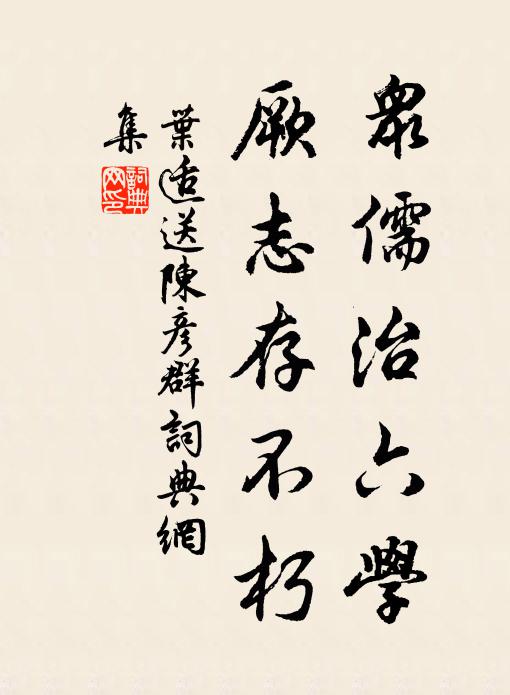 眾儒治六學
厥志存不朽
葉适送陳彥群詞典網
集
詞典網印